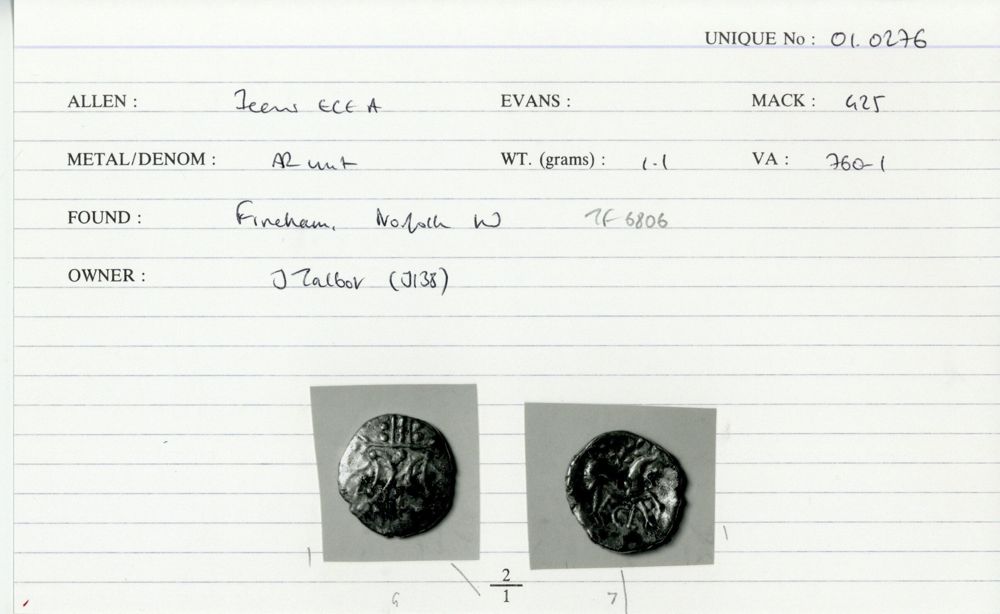 UNIQUE No : 01.0276
ALLEN : Iceni ECE A EVANS : MACK : 425
METAL/DENOM : AR unit WT. (grams) : 1.1 VA : 760-1
FOUND : Fincham, Norfolk W TF 6806
OWNER : J Talbot (J138)
2
1
6 7